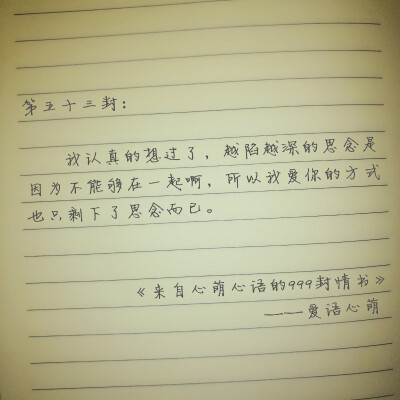 第五十三封：
我认真的想过了，越陷越深的思念是
因为不能够在一起啊，所以我爱你的方式
也只剩下了思念而已。
《来自心萌心语的999封情书》
——爱语心萌